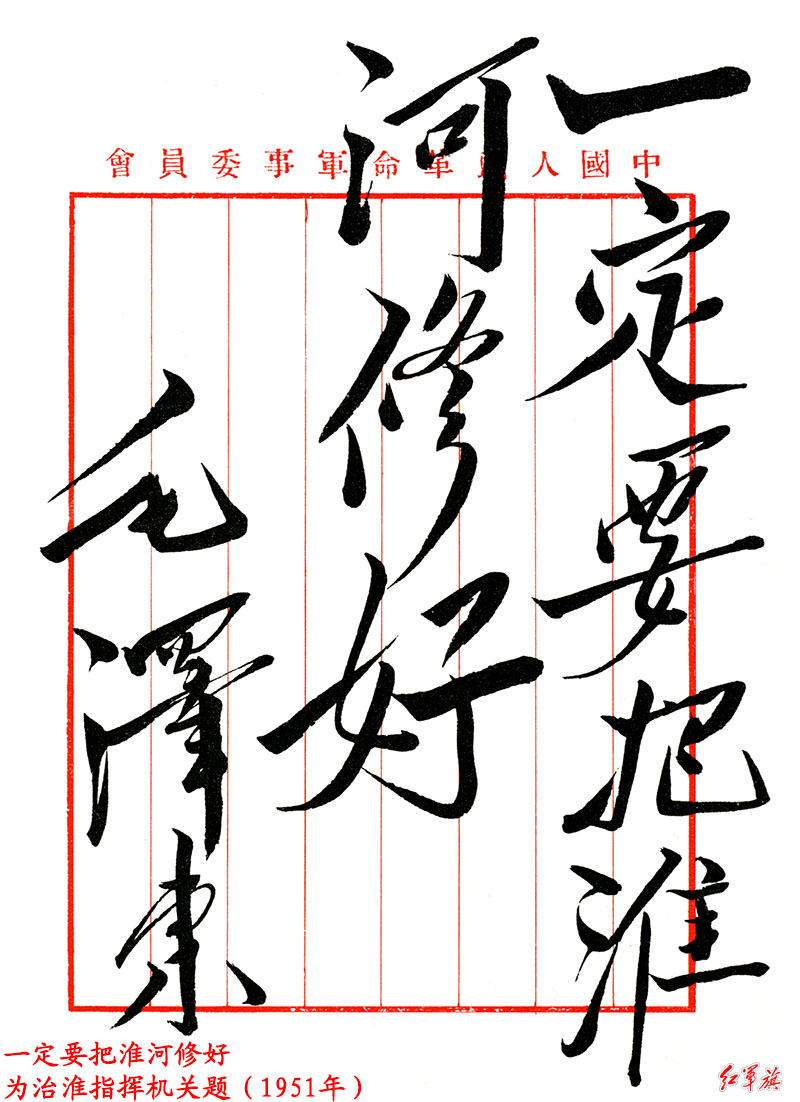 中國人民革命軍事委員會
一定要把淮
河修好
毛澤東
一定要把淮河修好
为治淮指挥机关题（1951年）
红军旗